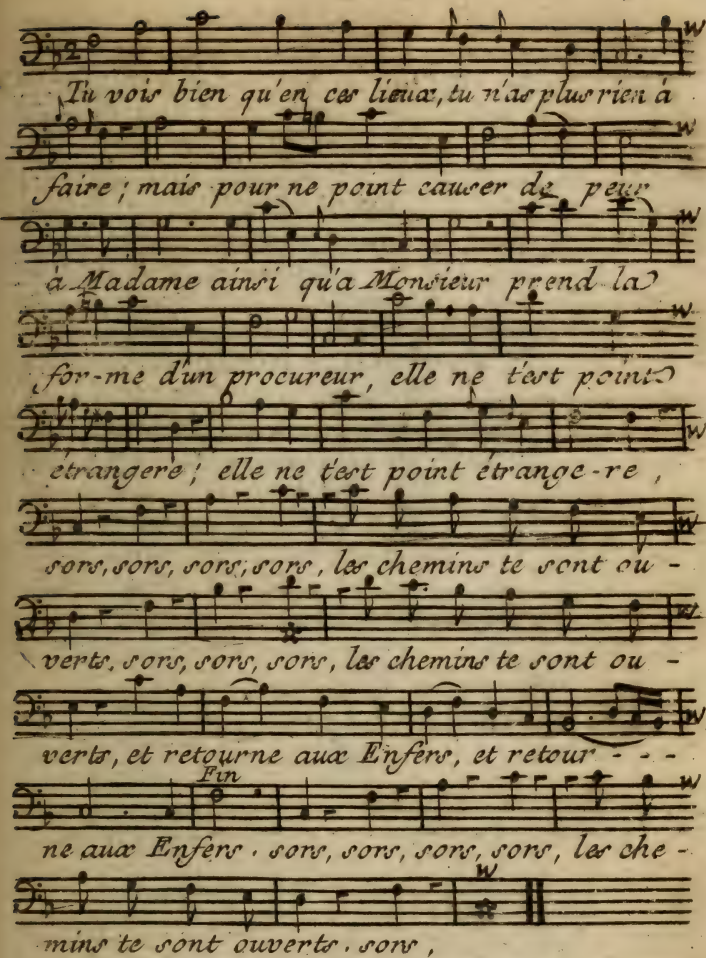 Tu vois bien qu'en ces lieux, tu n'as plus rien à
faire; mais pour ne point causer de peur
à Madame ainsi qu'a Monsieur prend la
for-me d'un procureur, elle ne t'est point
étrangere; elle ne t'est point étrange-re,
sors, sors, sors, sors, les chemins te sont ou-
verts, sors, sors, sors, les chemins te sont ou-
verts, et retourne aux Enfers, et retour - - -
Fin
ne aux Enfers. sors, sors, sors, sors, les che-
mins te sont ouverts. sors,